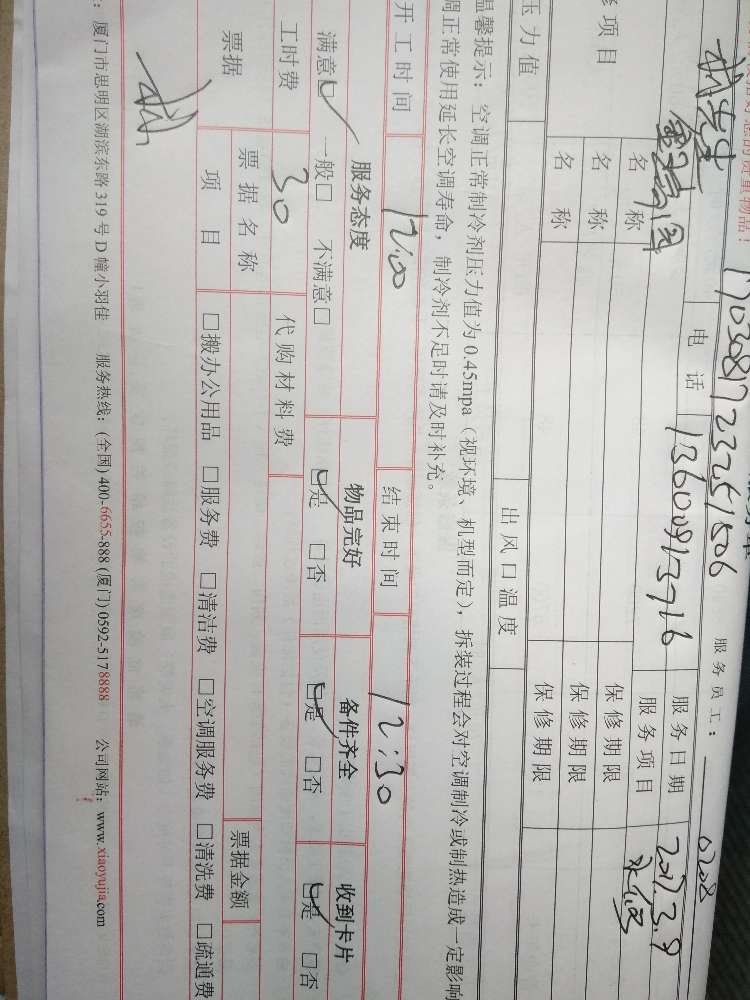 1703081723251506 服务员工： 0208
电话 13600913716 服务日期 2017.3.9
修项目 服务项目
名称 保修期限
名称 保修期限
名称 保修期限
压力值 出风口温度
温馨提示：空调正常制冷剂压力值为0.45mpa（视环境、机型而定），拆装过程会对空调制冷或制热造成一定影响
调正常使用延长空调寿命，制冷剂不足时请及时补充。
开工时间 12:00 结束时间 12:30
服务态度 物品完好 备件齐全 收到卡片
满意☑ 一般□ 不满意□ ☑是 □否 ☑是 □否 ☑是 □否
工时费 30 代购材料费
票据 票据名称 票据金额
项目 □搬办公用品 □服务费 □清洁费 □空调服务费 □清洗费 □疏通费
：厦门市思明区湖滨东路319号D幢小羽佳 服务热线：(全国)400-6655-888 (厦门)0592-5178888 公司网站：www.xiaoyujia.com